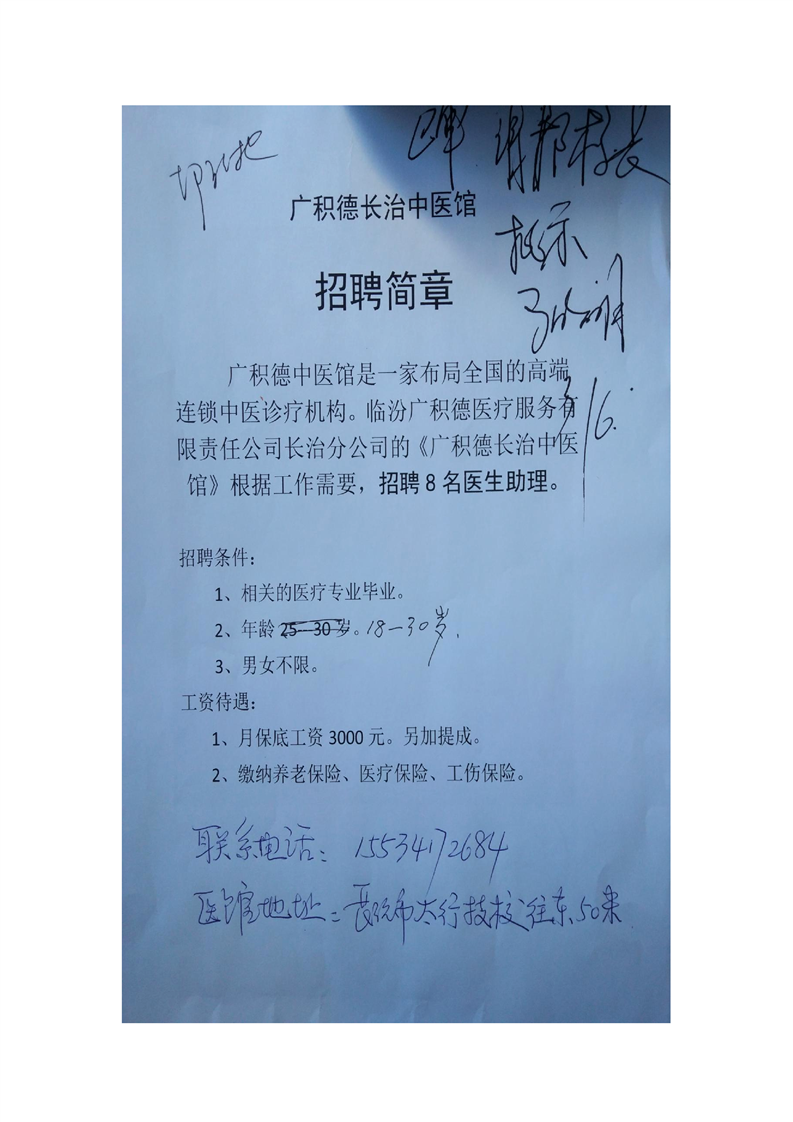 广积德长治中医馆
批示
招聘简章
广积德中医馆是一家布局全国的高端
连锁中医诊疗机构。临汾广积德医疗服务有
限责任公司长治分公司的《广积德长治中医
馆》根据工作需要，招聘8名医生助理。
招聘条件：
1、相关的医疗专业毕业。
2、年龄25—30岁。18—30岁.
3、男女不限。
工资待遇：
1、月保底工资3000元。另加提成。
2、缴纳养老保险、医疗保险、工伤保险。
联系电话：15534172684
医馆地址：长治市太行技校往东50米